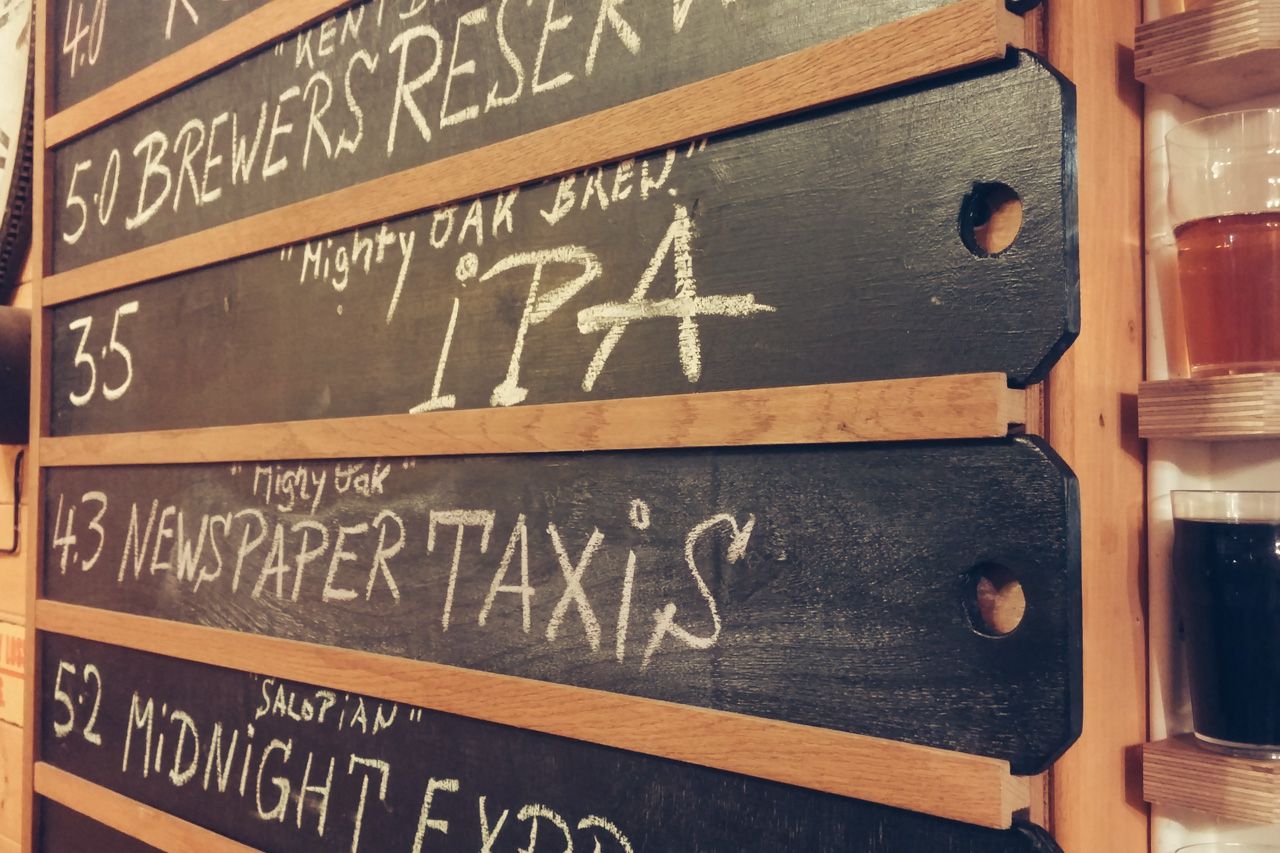 4.0
"KENT
5.0 BREWERS RESERV
"Mighty OAK BREW."
3.5 iPA
"Mighy Oak"
4.3 NEWSPAPER TAXiS
"SALOPiAN"
5.2 MiDNiGHT EXPR